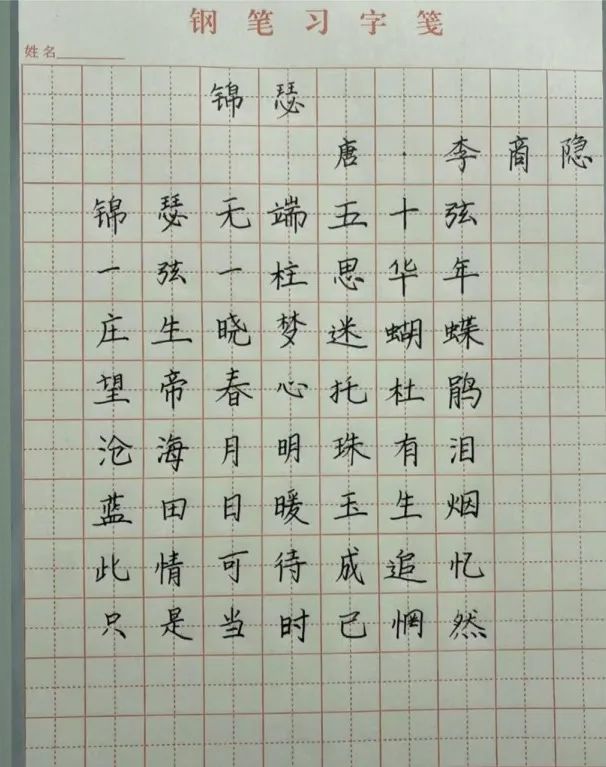 钢笔习字笺
姓名
锦瑟
唐·李商隐
锦瑟无端五十弦
一弦一柱思华年
庄生晓梦迷蝴蝶
望帝春心托杜鹃
沧海月明珠有泪
蓝田日暖玉生烟
此情可待成追忆
只是当时已惘然